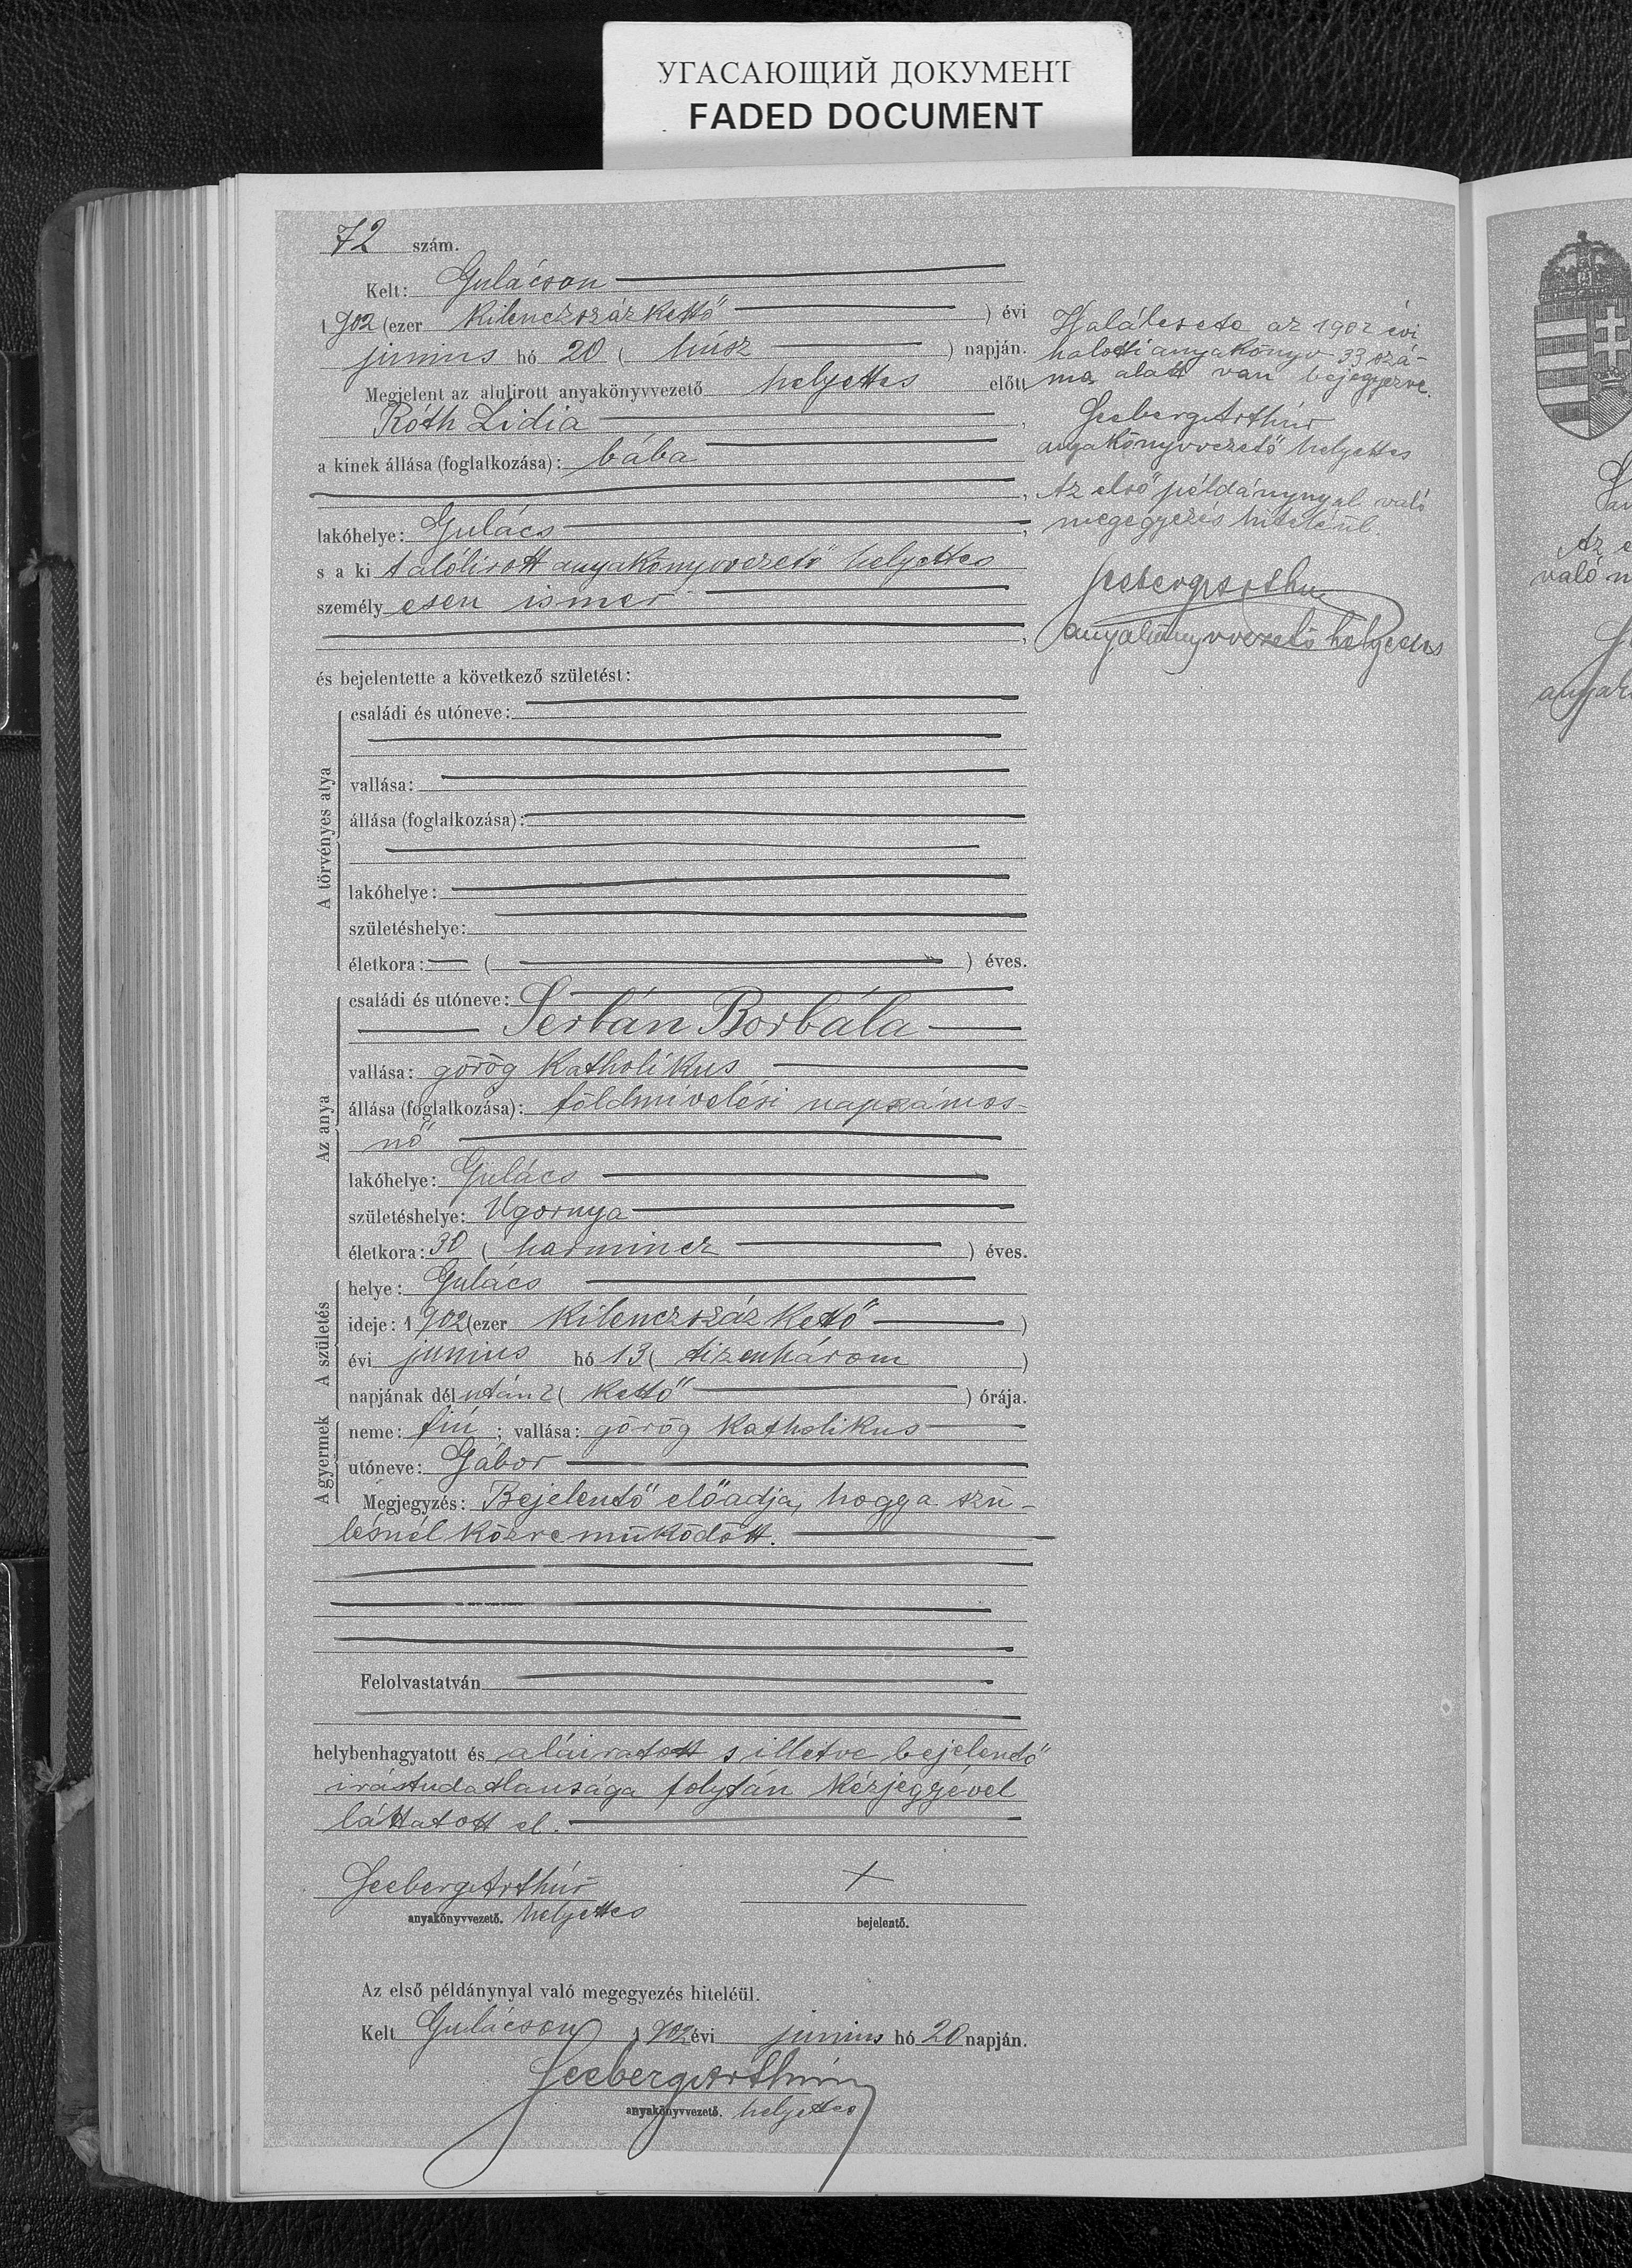 УГАСАЮЩИЙ ДОКУМЕНТ
FADED DOCUMENT
72 szám.
Kelt: Gulácson
1902 (ezer kilenczszázkettő ) évi
junius hó 20 ( húsz ) napján.
Megjelent az alulirott anyakönyvvezető helyettes előtt
Róth Lidia ,
a kinek állása (foglalkozása): bába
,
lakóhelye: Gulács ,
s a ki t alólirott anyakönyvvezető helyettes
személy esen ismer
,
és bejelentette a következő születést:
A törvényes atya
családi és utóneve:
vallása:
állása (foglalkozása):
lakóhelye:
születéshelye:
életkora: ( ) éves.
Az anya
családi és utóneve:
Serbán Borbála
vallása: görög katholikus
állása (foglalkozása): földmivelési napszámos-
nő
lakóhelye: Gulács
születéshelye: Ugornya
életkora: 30 ( harmincz ) éves.
A születés
helye: Gulács
ideje: 1902 (ezer kilenczszáz kettő )
évi junius hó 13 ( tizenhárom )
napjának délután 2 ( kettő ) órája.
A gyermek
neme: fiú ; vallása: görög katholikus
utóneve: Gábor
Megjegyzés: Bejelentő előadja, hogy a szü-
lésnél közreműködött.
Felolvastatván
helybenhagyatott és aláiratott s illetve bejelentő
irástudatlansága folytán kézjegyével
láttatott el.
Seeberg Arthúr +
anyakönyvvezető. helyettes bejelentő.
Az első példánynyal való megegyezés hiteléül.
Kelt Gulácson 1902 évi junius hó 20 napján.
Seeberg Arthúr
anyakönyvvezető. helyettes
Halálesete az 1902 évi
halotti anyakönyv 33 szá-
ma alatt van bejegyezve.
Seeberg Arthúr
anyakönyvvezető helyettes
Az első példánynyal való
megegyezés hiteléül.
Seeberg Arthur
anyakönyvvezető helyettes
Az e
való m